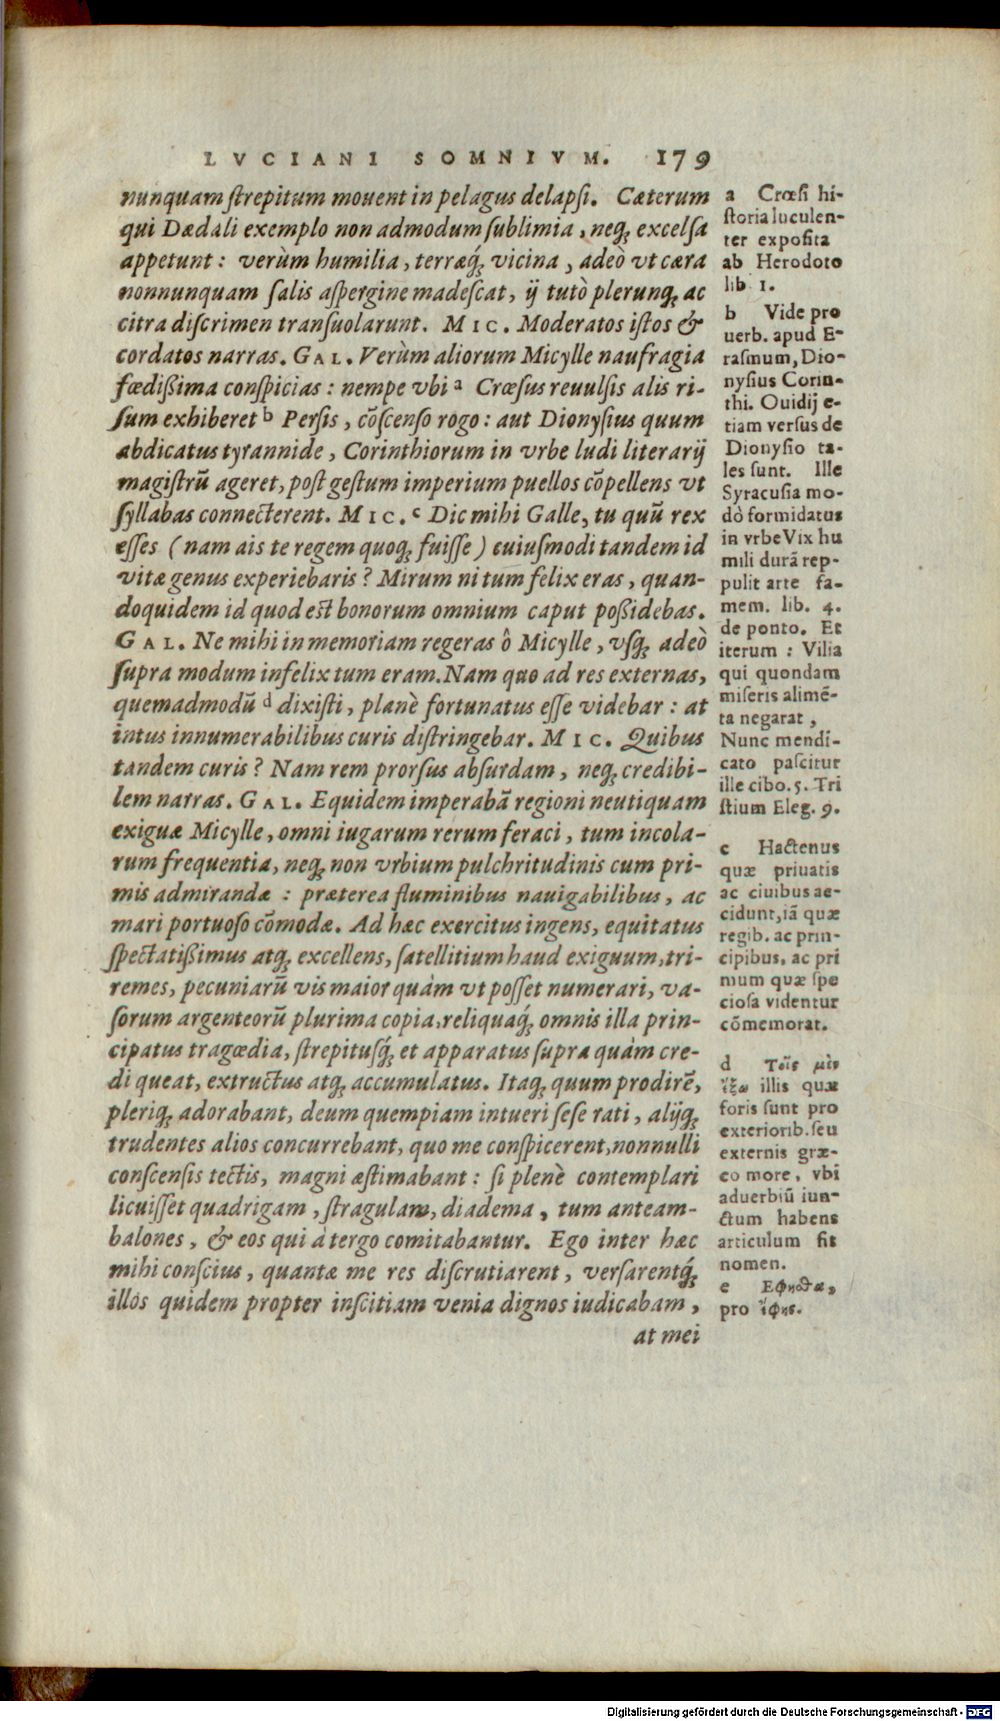 LVCIANI SOMNIVM. 179
nunquam ſtrepitum mouent in pelagus delapſi. Cæterum
qui Dædali exemplo non admodum ſublimia, neq́; excelſa
appetunt: verùm humilia, terræq́; vicina, adeò vt cæra
nonnunquam ſalis aſpergine madeſcat, ij tutò plerunq; ac
citra diſcrimen tranſuolarunt. MIC. Moderatos iſtos &
cordatos narras. GAL. Verùm aliorum Micylle naufragia
fœdißima conſpicias: nempe vbi a Crœſus reuulſis alis ri-
ſum exhiberet b Perſis, cõſcenſo rogo: aut Dionyſius quum
abdicatus tyrannide, Corinthiorum in vrbe ludi literarij
magiſtrũ ageret, poſt geſtum imperium puellos cõpellens vt
ſyllabas connecterent. MIC. c Dic mihi Galle, tu quũ rex
eſſes (nam ais te regem quoq; fuiſſe) cuiuſmodi tandem id
vitæ genus experiebaris? Mirum ni tum felix eras, quan-
doquidem id quod eſt bonorum omnium caput poßidebas.
GAL. Ne mihi in memoriam regeras ô Micylle, vſq; adeò
ſupra modum infelix tum eram. Nam quo ad res externas,
quemadmodũ d dixiſti, planè fortunatus eſſe videbar: at
intus innumerabilibus curis diſtringebar. MIC. Quibus
tandem curis? Nam rem prorſus abſurdam, neq; credibi-
lem narras. GAL. Equidem imperabã regioni neutiquam
exiguæ Micylle, omni iugarum rerum feraci, tum incola-
rum frequentia, neq; non vrbium pulchritudinis cum pri-
mis admirandæ: præterea fluminibus nauigabilibus, ac
mari portuoſo cõmodæ. Ad hæc exercitus ingens, equitatus
ſpectatißimus atq; excellens, ſatellitium haud exiguum, tri-
remes, pecuniarũ vis maior quàm vt poſſet numerari, va-
ſorum argenteorũ plurima copia, reliquaq́; omnis illa prin-
cipatus tragœdia, ſtrepituſq́; et apparatus ſupra quàm cre-
di queat, extructus atq; accumulatus. Itaq; quum prodirẽ,
pleriq; adorabant, deum quempiam intueri ſeſe rati, alijq;
trudentes alios concurrebant, quo me conſpicerent, nonnulli
conſcenſis tectis, magni æſtimabant: ſi plenè contemplari
licuiſſet quadrigam, ſtragulam, diadema, tum anteam-
balones, & eos qui à tergo comitabantur. Ego inter hæc
mihi conſcius, quantæ me res diſcrutiarent, verſarentq́;
illos quidem propter inſcitiam venia dignos iudicabam,
at mei
a Crœſi hi-
ſtoria luculen-
ter expoſita
ab Herodoto
lib 1.
b Vide pro
uerb. apud E-
raſmum, Dio-
nyſius Corin-
thi. Ouidij e-
tiam verſus de
Dionyſio ta-
les ſunt. Ille
Syracuſia mo-
dò formidatus
in vrbe Vix hu
mili durã rep-
pulit arte fa-
mem. lib. 4.
de ponto. Et
iterum: Vilia
qui quondam
miſeris alimẽ-
ta negarat,
Nunc mendi-
cato paſcitur
ille cibo. 5. Tri
ſtium Eleg. 9.
c Hactenus
quæ priuatis
ac ciuibus ac-
cidunt, iã quæ
regib. ac prin-
cipibus, ac pri
mum quæ ſpe
cioſa videntur
cõmemorat.
d Τοῖς μὲν
ἔξω illis quæ
foris ſunt pro
exteriorib. ſeu
externis græ-
co more, vbi
aduerbiũ iun-
ctum habens
articulum fit
nomen.
e Εφησθα,
pro ἔφης.
Digitalisierung gefördert durch die Deutsche Forschungsgemeinschaft - DFG